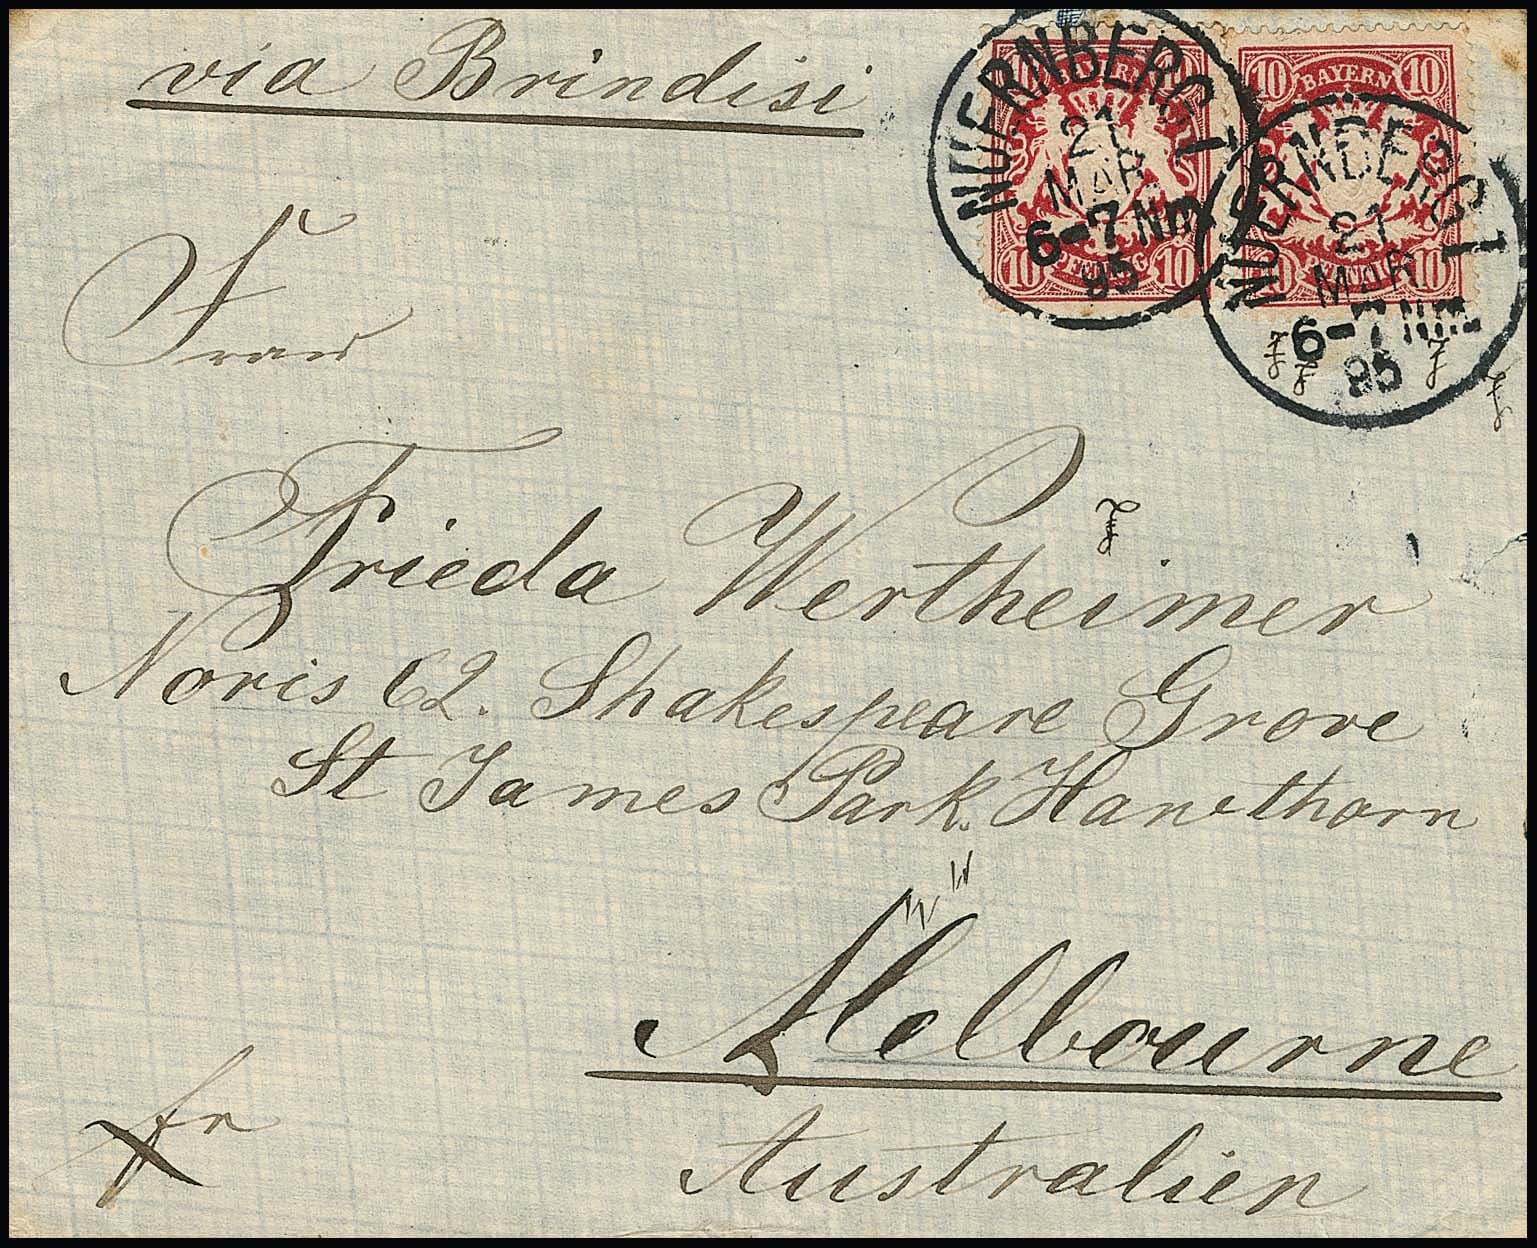 via Brindisi
10 BAYERN 10
10 PFENNIG 10
NUERNBERG I
21
MAR
6-7 Nm
95
10 BAYERN 10
10 PFENNIG 10
NUERNBERG I
21
MAR
6-7 NM.
95
Frau
Frieda Wertheimer
Noris 62. Shakespeare Grove
St James Park. Hawthorn
Melbourne
fr
Australien